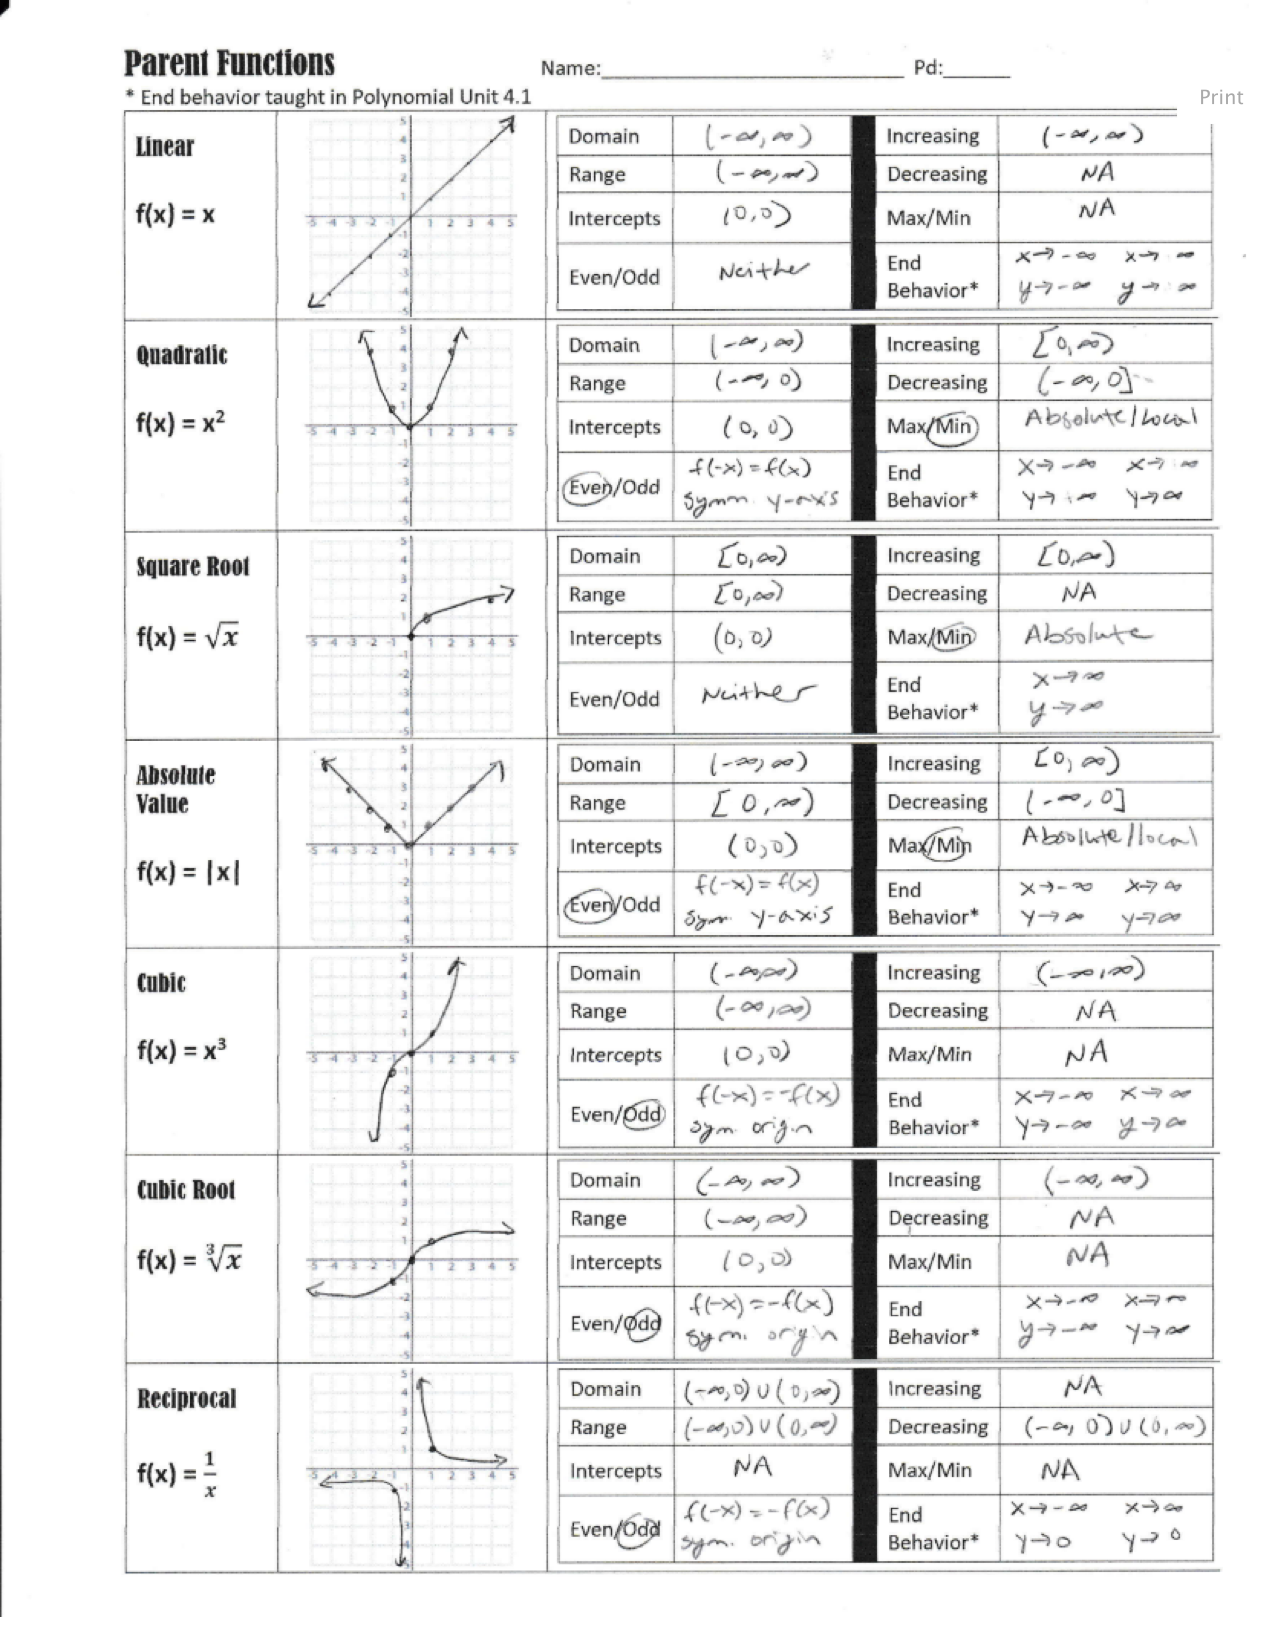 Parent Functions Name:____________________ Pd:______
* End behavior taught in Polynomial Unit 4.1
Print
Linear
f(x) = x
Domain (-∞, ∞) Increasing (-∞, ∞)
Range (-∞, ∞) Decreasing NA
Intercepts (0,0) Max/Min NA
Even/Odd Neither End Behavior* x→-∞ x→∞
y→-∞ y→∞
Quadratic
f(x) = x²
Domain (-∞, ∞) Increasing [0,∞)
Range (-∞, 0) Decreasing (-∞, 0]
Intercepts (0, 0) Max/Min Absolute/Local
Even/Odd f(-x) = f(x) End Behavior* x→-∞ x→∞
symm. y-axis y→∞ y→∞
Square Root
f(x) = √x
Domain [0,∞) Increasing [0,∞)
Range [0,∞) Decreasing NA
Intercepts (0, 0) Max/Min Absolute
Even/Odd Neither End Behavior* x→∞
y→∞
Absolute
Value
f(x) = |x|
Domain (-∞, ∞) Increasing [0, ∞)
Range [0, ∞) Decreasing (-∞, 0]
Intercepts (0,0) Max/Min Absolute/local
Even/Odd f(-x) = f(x) End Behavior* x→-∞ x→∞
sym. y-axis y→∞ y→∞
Cubic
f(x) = x³
Domain (-∞,∞) Increasing (-∞,∞)
Range (-∞,∞) Decreasing NA
Intercepts (0,0) Max/Min NA
Even/Odd f(-x) = -f(x) End Behavior* x→-∞ x→∞
sym. origin y→-∞ y→∞
Cubic Root
f(x) = ∛x
Domain (-∞, ∞) Increasing (-∞, ∞)
Range (-∞, ∞) Decreasing NA
Intercepts (0,0) Max/Min NA
Even/Odd f(-x) = -f(x) End Behavior* x→-∞ x→∞
sym. origin y→-∞ y→∞
Reciprocal
f(x) = 1/x
Domain (-∞,0) U (0,∞) Increasing NA
Range (-∞,0) U (0,∞) Decreasing (-∞, 0) U (0, ∞)
Intercepts NA Max/Min NA
Even/Odd f(-x) = -f(x) End Behavior* x→-∞ x→∞
sym. origin y→0 y→0